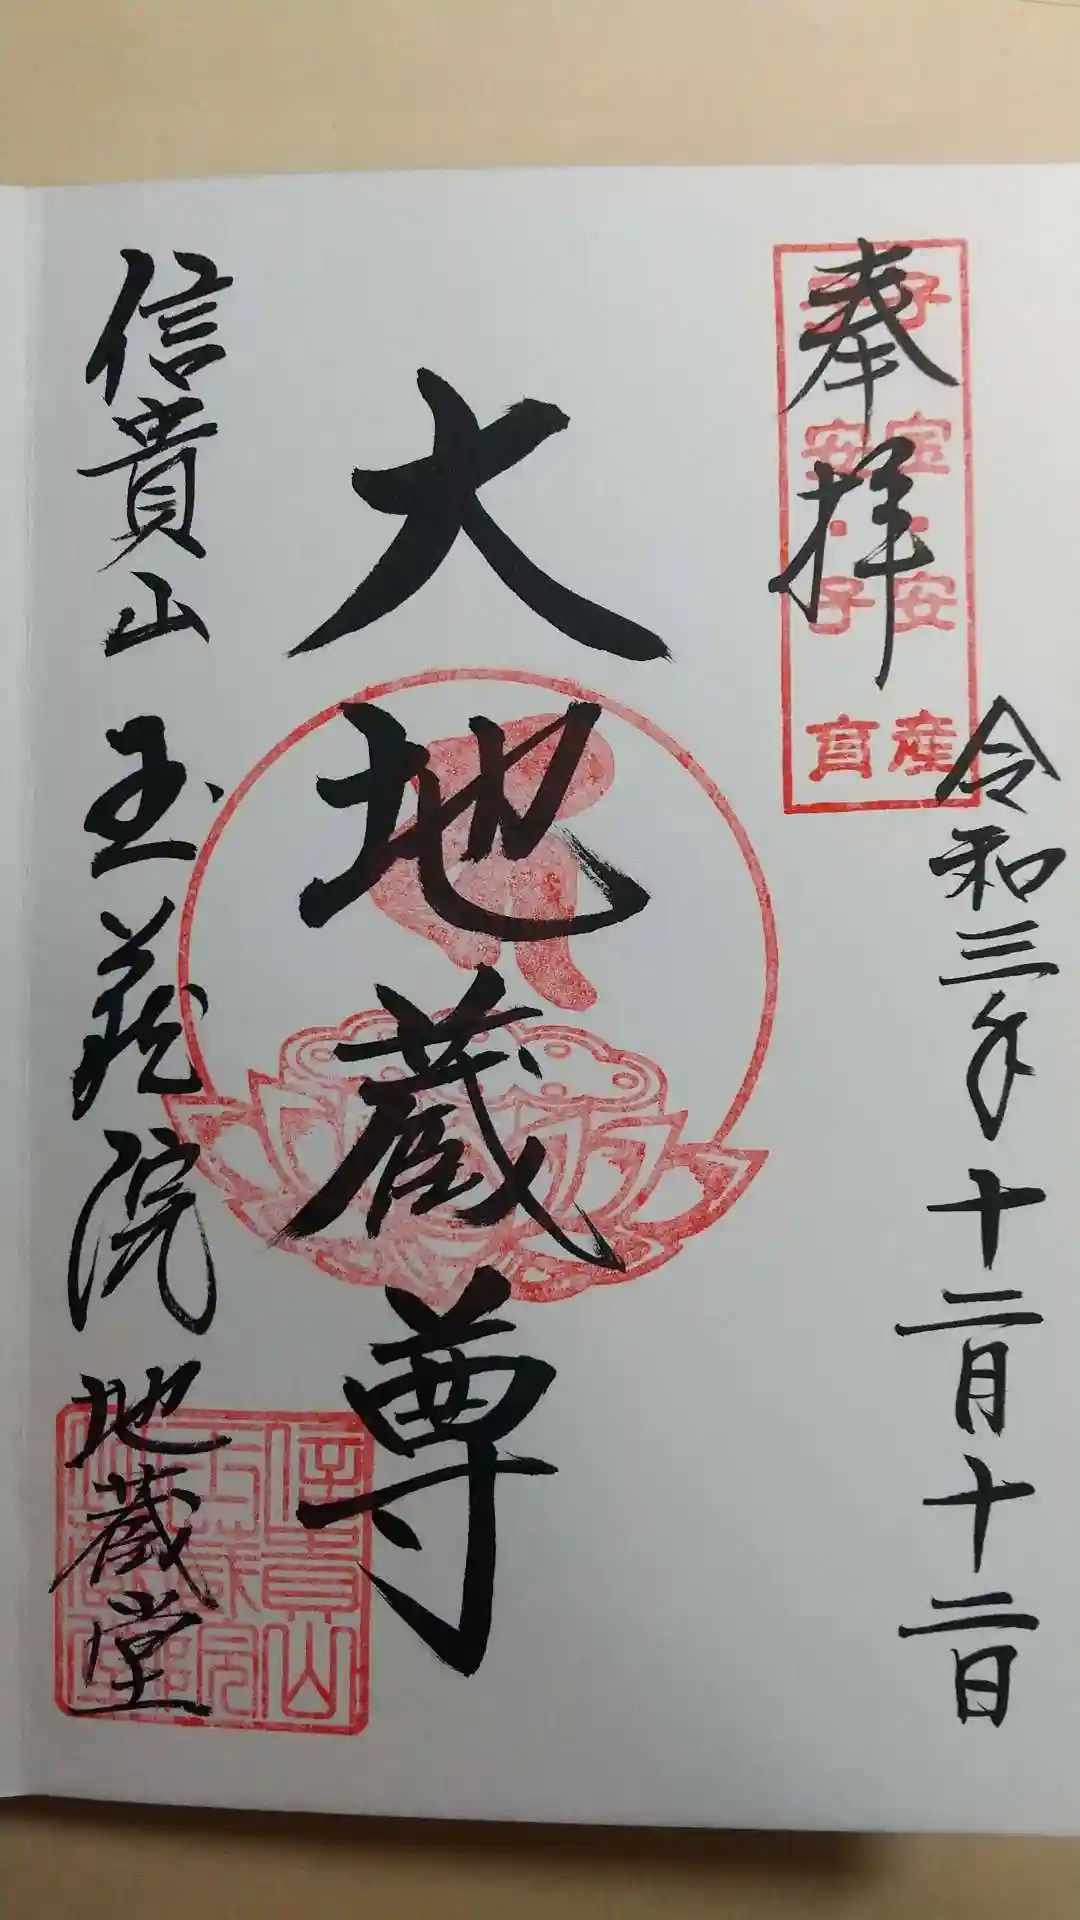 奉拝
子宝・安産
子安・子育
令和三年十二月十二日
大地蔵尊
信貴山 玉蔵院 地蔵堂
信貴山
玉蔵院
地蔵堂